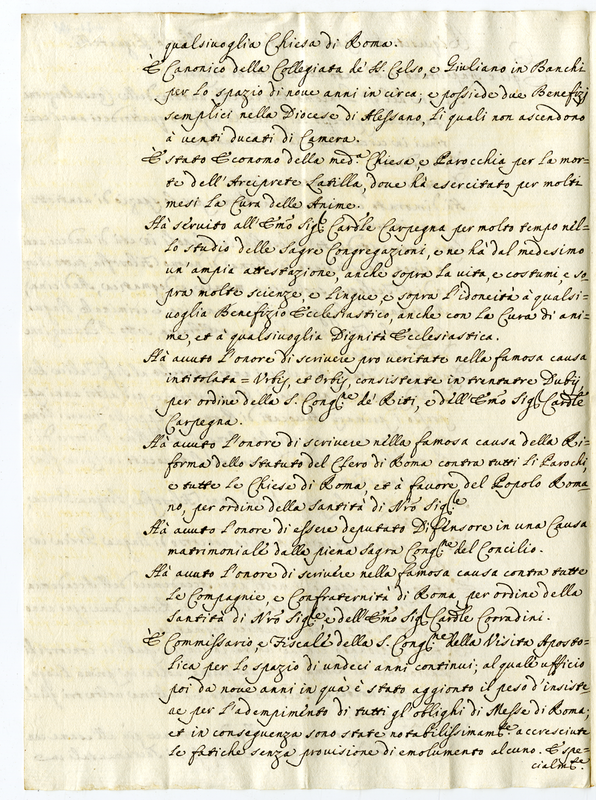 qualsivoglia Chiesa di Roma.
È Canonico della Collegiata de' SS. Celso, e Giuliano in Banchi
per lo spazio di nove anni in circa, e possiede due Benefizj
semplici nella Diocese di Alessano, li quali non ascendono
à venti ducati di Camera.
È stato Economo della med.ª Chiesa, e Parocchia per la mor=
te dell'Arciprete Latilla, dove hà esercitato per molti
mesi la Cura delle Anime.
Hà servito all'Emo Sig.r Cardle Carpegna per molto tempo nel=
lo studio delle sagre Congregazioni, e ne hà dal medesimo
un'ampia attestazione, anche sopra la vita, e costumi e so=
pra molte scienze, e lingue, e sopra l'idoneità à qualsi=
voglia Benefizio Ecclesiastico, anche con la Cura di ani=
me, et à qualsivoglia Dignità Ecclesiastica.
Hà avuto l'onore di scrivere pro veritate nella famosa causa
intitolata = Urbis, et Orbis, consistente in trentatre Dubij,
per ordine della S. Cong.ne de' Riti, e dell'Emo Sig.r Cardle
Carpegna.
Hà avuto l'onore di scrivere nella famosa causa della Ri=
forma dello statuto del Clero di Roma contra tutti li Parochi,
e tutte le Chiese di Roma, et à favore del Popolo Roma=
no, per ordine della santità di Nro Sig.re
Hà avuto l'onore di essere deputato Difensore in una Causa
matrimoniale dalla piena sagra Cong.ne del Concilio.
Hà avuto l'onore di scrivere nella famosa causa contra tutte
le Compagnie, e Confraternità di Roma per ordine della
santità di Nro Sig.re, e dell'Emo Sig.r Cardle Corradini.
È Commissario, e Fiscale della S. Cong.ne della Visita Aposto=
lica per lo spazio di undeci anni continui; al quale uffizio
poi da nove anni in quà è stato aggionto il peso d'insiste=
re per l'adempimento di tutti gl'oblighi di Messe di Roma;
et in conseguenza sono state notabilissimam.te accresciute
le fatiche senza provisione di emolumento alcuno. E spe=
cialm.te